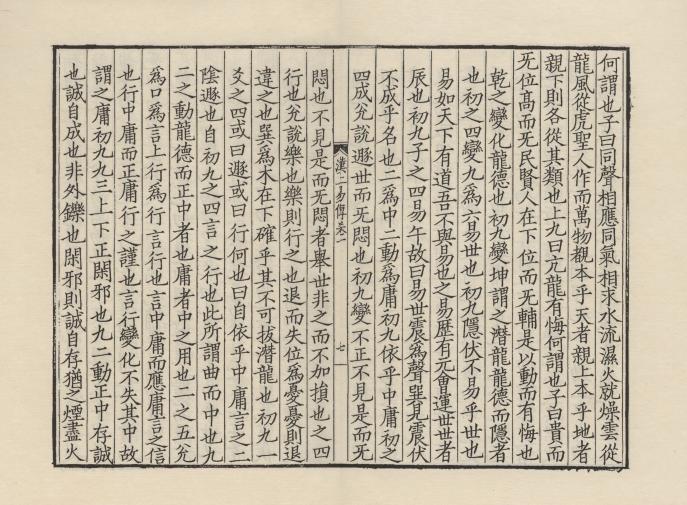 何謂也子曰同聲相應同氣相求水流濕火就燥雲從
龍風從虎聖人作而萬物覩本乎天者親上本乎地者
親下則各從其類也上九曰亢龍有悔何謂也子曰貴而
旡位髙而旡民賢人在下位而旡輔是以動而有悔也
乾之變化龍德也初九變坤謂之潛龍龍德而隱者
也初之四變九爲六易世也初九隱伏不易乎世也
易如天下有道吾不與易也之易歴有元會運世世者
辰也初九子之四易午故曰易世震爲聲巽見震伏
不成乎名也二爲中二動爲庸初九依乎中庸初之
四成兊說遯世而旡悶也初九變不正不見是而旡
漢上易傳卷一
七
悶也不見是而旡悶者舉世非之而不加損也之四
行也兊說樂也樂則行之也退而失位爲憂憂則退
違之也巽爲木在下確乎其不可拔潛龍也初九一
爻之四或曰遯或曰行何也曰自依乎中庸言之二
陰遯也自初九之四言之行也此所謂曲而中也九
二之動龍德而正中者也庸者中之用也二之五兊
爲口爲言上行爲行言行也言中庸而應庸言之信
也行中庸而正庸行之謹也言行變化不失其中故
謂之庸初九九三上下正閑邪也九二動正中存誠
也誠自成也非外鑠也閑邪則誠自存猶之煙盡火